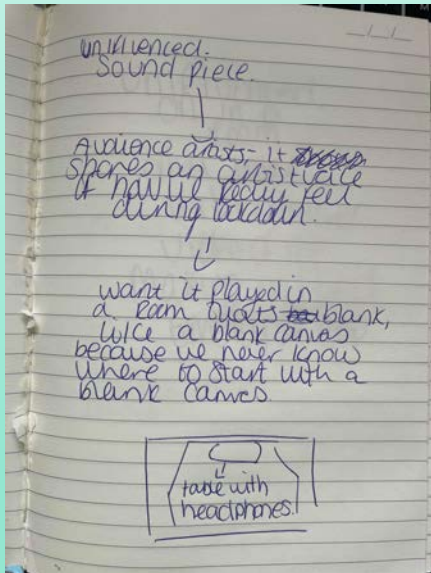 uninfluenced.
Sound piece.
Audience artists, - it
shares an artist voice
of how we really feel
during lockdown.
want it played in
a room that's blank,
like a blank canvas
because we never know
where to start with a
blank canvas
table with
headphones.